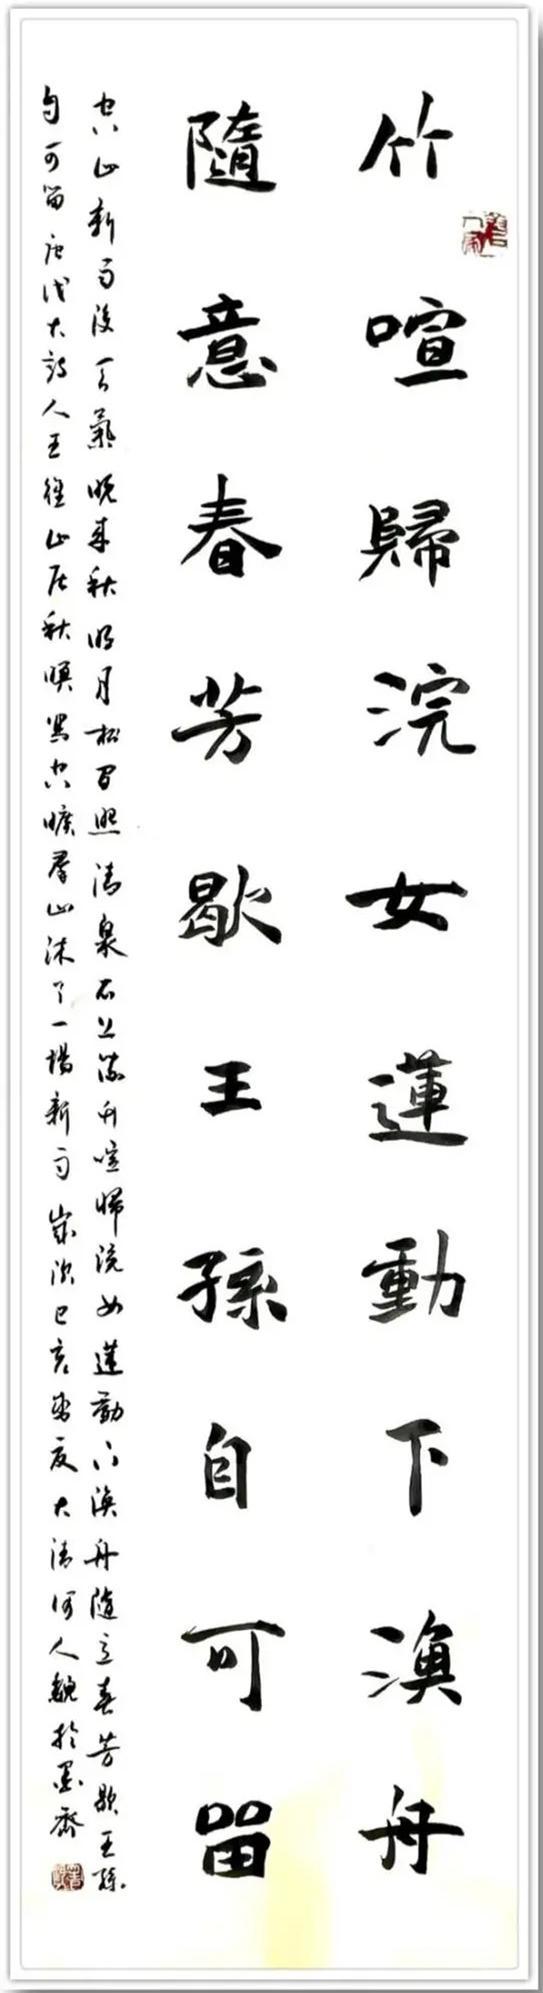 竹喧歸浣女蓮動下漁舟
隨意春芳歇王孫自可留
空山新雨後天氣晚來秋明月松間照清泉石上流竹喧歸浣女蓮動下漁舟隨意春芳歇王孫
自可留唐代大詩人王維山居秋暝寫空曠群山沐了一場新雨歲次己亥大清河人於墨齋